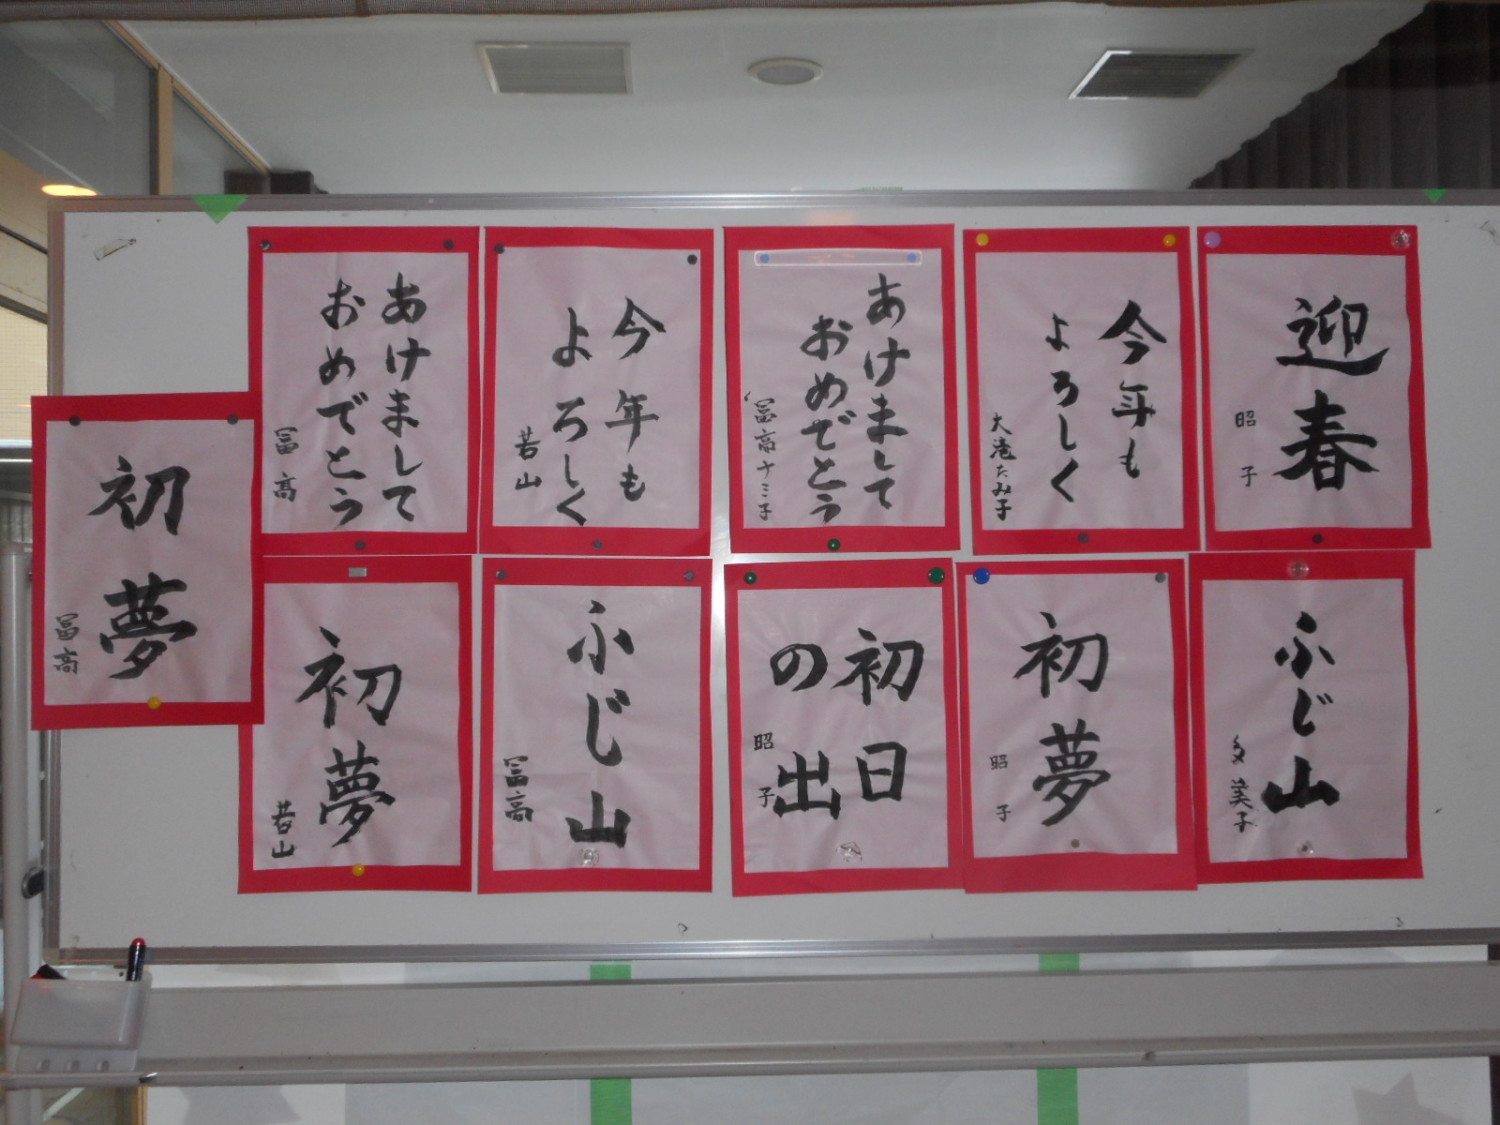 迎春
昭子
今年も
よろしく
大滝たみ子
あけまして
おめでとう
冨高ナミ子
今年も
よろしく
若山
あけまして
おめでとう
冨高
初夢
冨高
ふじ山
多美子
初夢
昭子
初日
の出
昭子
ふじ山
冨高
初夢
若山